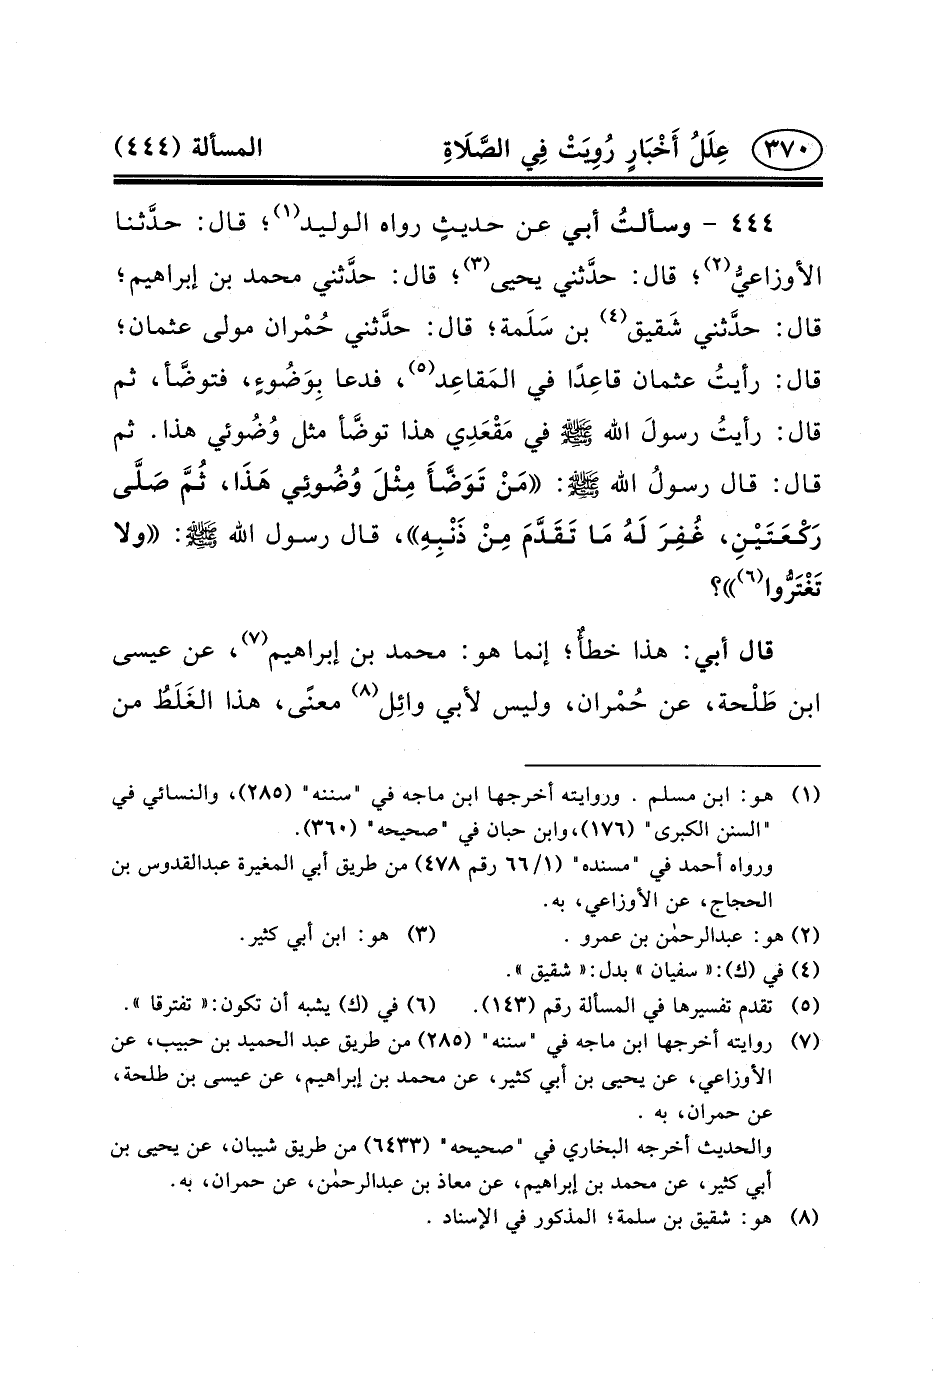 ٣٧٠ عِلَلُ أَخْبَارٍ رُوِيَتْ فِي الصَّلَاةِ المسألة (٤٤٤)
٤٤٤ - وسألتُ أبي عن حديثٍ رواه الوليد(١)؛ قال: حدَّثنا
الأوزاعيُّ(٢)؛ قال: حدَّثني يحيى(٣)؛ قال: حدَّثني محمد بن إبراهيم؛
قال: حدَّثني شَقيق(٤) بن سَلَمة؛ قال: حدَّثني حُمْران مولى عثمان؛
قال: رأيتُ عثمان قاعِدًا في المَقاعِد(٥)، فدعا بِوَضُوءٍ، فتوضَّأ، ثم
قال: رأيتُ رسولَ الله ﷺ في مَقْعَدِي هذا توضَّأ مثل وُضُوئي هذا. ثم
قال: قال رسولُ الله ﷺ: «مَنْ تَوَضَّأَ مِثْلَ وُضُوئِي هَذَا، ثُمَّ صَلَّى
رَكْعَتَيْنِ، غُفِرَ لَهُ مَا تَقَدَّمَ مِنْ ذَنْبِهِ»، قال رسول الله ﷺ: «ولا
تَغْتَرُّوا(٦)»؟
قال أبي: هذا خطأٌ؛ إنما هو: محمد بن إبراهيم(٧)، عن عيسى
ابن طَلْحة، عن حُمْران، وليس لأبي وائِل(٨) معنًى، هذا الغَلَطُ من
(١) هو: ابن مسلم . وروايته أخرجها ابن ماجه في "سننه" (٢٨٥)، والنسائي في
"السنن الكبرى" (١٧٦)، وابن حبان في "صحيحه" (٣٦٠).
ورواه أحمد في "مسنده" (١/٦٦ رقم ٤٧٨) من طريق أبي المغيرة عبدالقدوس بن
الحجاج، عن الأوزاعي، به.
(٢) هو: عبدالرحمٰن بن عمرو . (٣) هو: ابن أبي كثير.
(٤) في (ك):« سفيان » بدل:« شقيق ».
(٥) تقدم تفسيرها في المسألة رقم (١٤٣). (٦) في (ك) يشبه أن تكون:« تفترقا ».
(٧) روايته أخرجها ابن ماجه في "سننه" (٢٨٥) من طريق عبد الحميد بن حبيب، عن
الأوزاعي، عن يحيى بن أبي كثير، عن محمد بن إبراهيم، عن عيسى بن طلحة،
عن حمران، به .
والحديث أخرجه البخاري في "صحيحه" (٦٤٣٣) من طريق شيبان، عن يحيى بن
أبي كثير، عن محمد بن إبراهيم، عن معاذ بن عبدالرحمٰن، عن حمران، به.
(٨) هو: شقيق بن سلمة؛ المذكور في الإسناد .